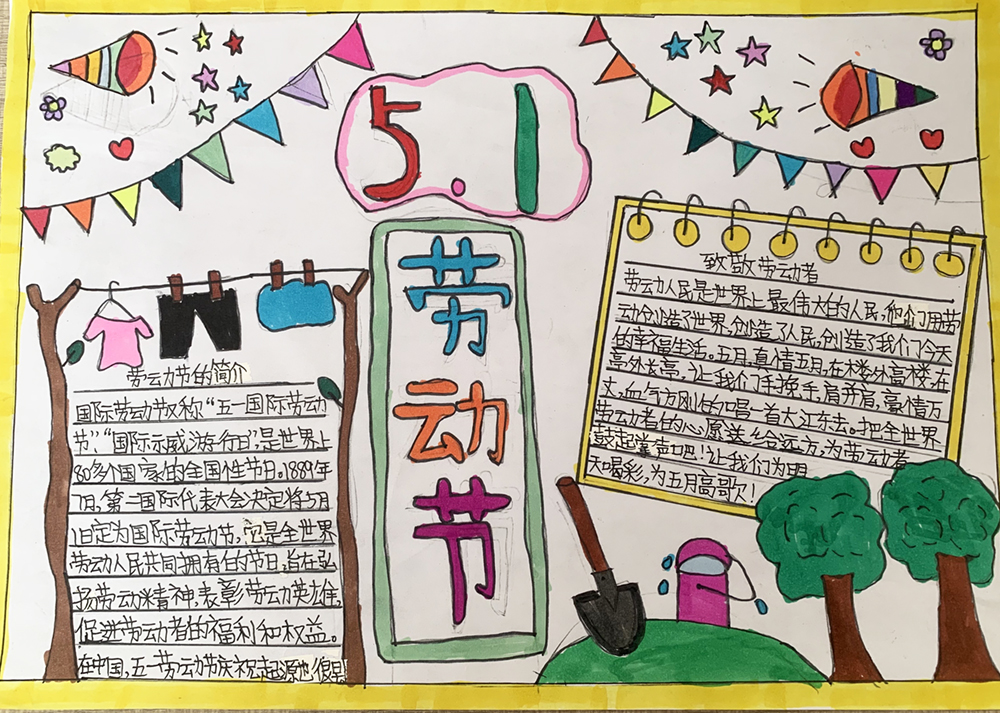 5.1
劳动节
劳动节的简介
国际劳动节又称“五一国际劳动
节”、“国际示威游行日”,是世界上
80多个国家的全国性节日。1889年
7月,第二国际代表大会决定将5月
1日定为国际劳动节。它是全世界
劳动人民共同拥有的节日,旨在弘
扬劳动精神,表彰劳动英雄,
促进劳动者的福利和权益。
在中国,五一劳动节庆祝起源也很早!
致敬劳动者
劳动人民是世界上最伟大的人民,他们用劳
动创造了世界,创造了人民,创造了我们今天
的幸福生活。五月,真情五月,在楼外高楼,在
亭外长亭,让我们手挽手,肩并肩,豪情万
丈,血气方刚的唱一首大江东去。把全世界
劳动者的心愿送给远方,为劳动者
鼓起掌声吧!让我们为明
天喝彩,为五月高歌!